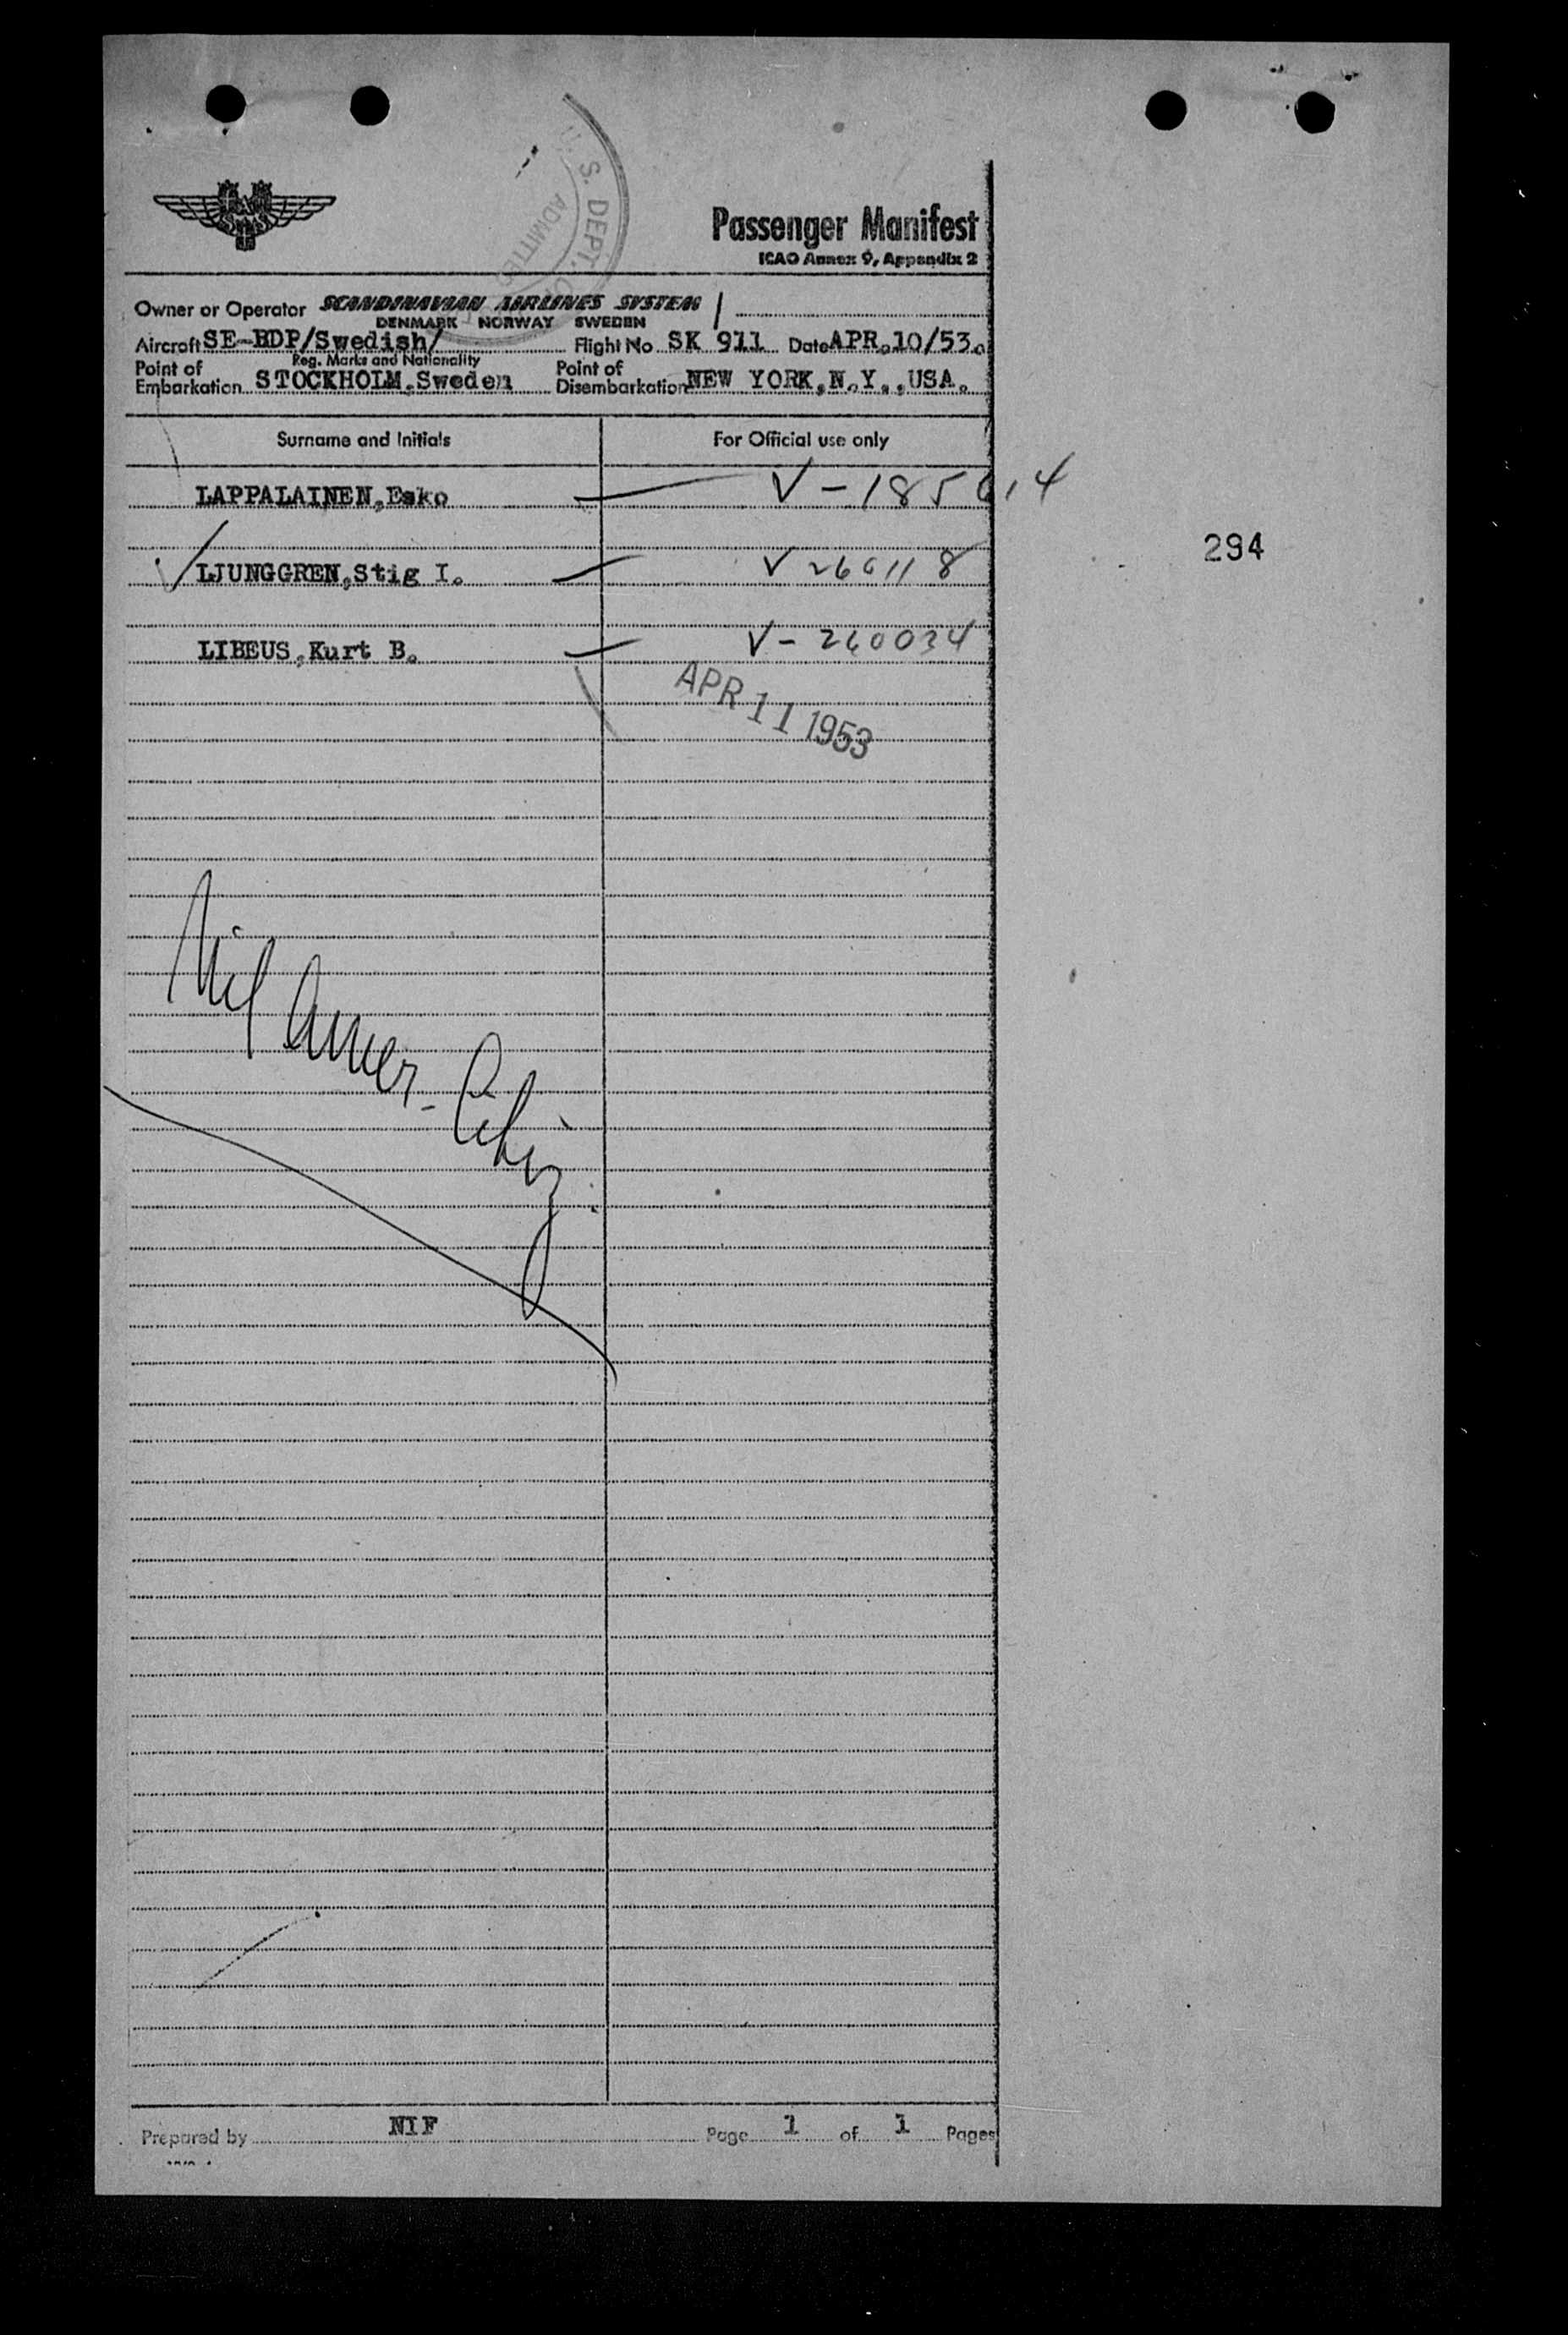 S. DEPT. O
ADMITTED
SAS
Passenger Manifest
ICAO Annex 9, Appendix 2
Owner or Operator SCANDINAVIAN AIRLINES SYSTEM
DENMARK NORWAY SWEDEN
Aircraft SE-BDP/Swedish/ Flight No SK 911 Date APR.10/53.
Reg. Marks and Nationality
Point of Embarkation STOCKHOLM,Sweden Point of Disembarkation NEW YORK,N.Y.,USA.
Surname and Initials For Official use only
LAPPALAINEN,Esko V-185614
294
LJUNGGREN,Stig I. V 260118
LIBEUS,Kurt B. V-260034
APR 11 1953
Nil Amer-Citiz.
Prepared by NIF Page 1 of 1 Pages